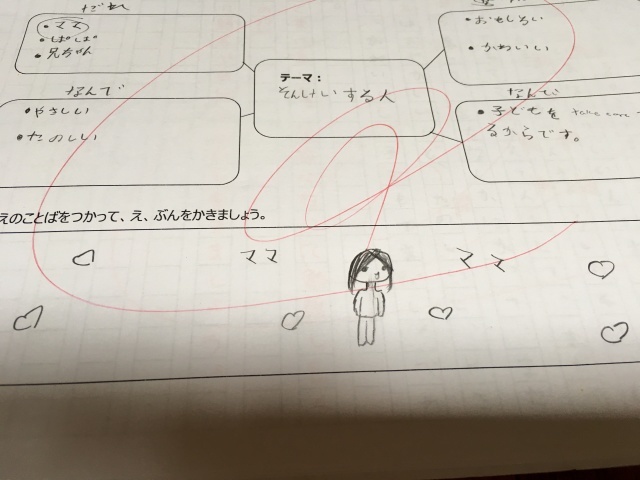 だれ
・ママ
・ぱぱ
・兄ちゃん
なんで
・やさしい
・たのしい
テーマ：
そんけいする人
・おもしろい
・かわいい
なんで
・子どもを take care
るからです。
えのことばをつかって、え、ぶんをかきましょう。
ママ
ママ